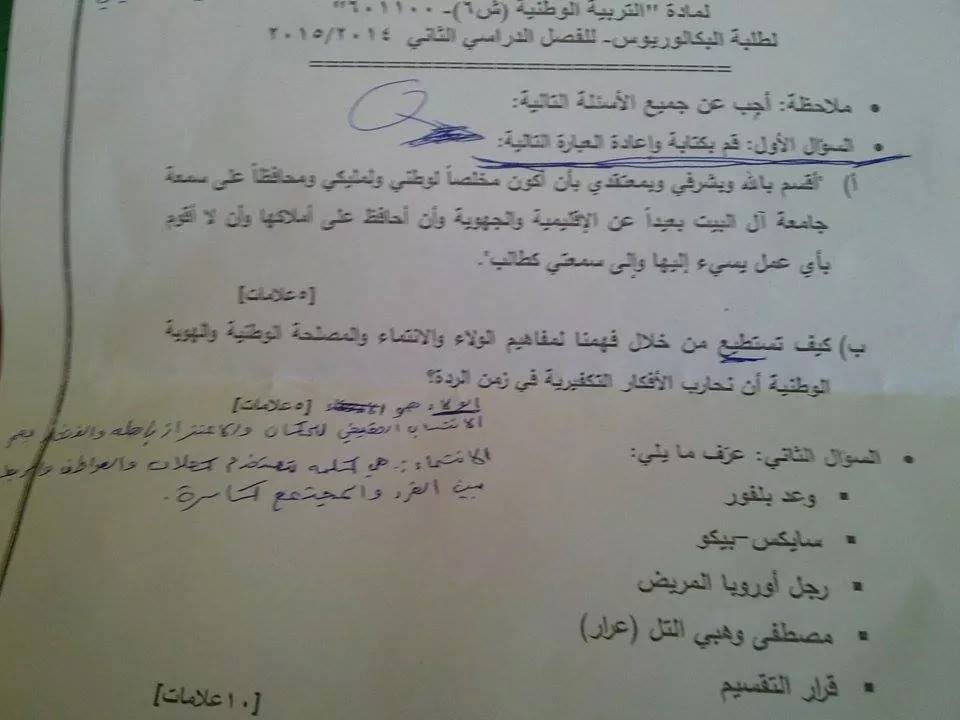 لمادة "التربية الوطنية (ش٦)- ٦٠١١٠٠"
لطلبة البكالوريوس- للفصل الدراسي الثاني ٢٠١٥/٢٠١٤
• ملاحظة: أجب عن جميع الأسئلة التالية:
• السؤال الأول: قم بكتابة وإعادة العبارة التالية:
أ) "أقسم بالله وبشرفي وبمعتقدي بأن أكون مخلصاً لوطني ولمليكي ومحافظاً على سمعة
جامعة آل البيت بعيداً عن الإقليمية والجهوية وأن أحافظ على أملاكها وأن لا أقوم
بأي عمل يسيء إليها وإلى سمعتي كطالب".
[٥علامات]
ب) كيف تستطيع من خلال فهمنا لمفاهيم الولاء والانتماء والمصلحة الوطنية والهوية
الوطنية أن نحارب الأفكار التكفيرية في زمن الردة؟
[٥علامات]
الولاء هو
الانتساب الحقيقي للمكان والاعتزاز بأهله
الانتماء: هي كلمه تستخدم والعواطف
بين الفرد والمجتمع كاسرة.
• السؤال الثاني: عرّف ما يلي:
▪ وعد بلفور
▪ سايكس-بيكو
▪ رجل أوروبا المريض
▪ مصطفى وهبي التل (عرار)
▪ قرار التقسيم
[١٠علامات]